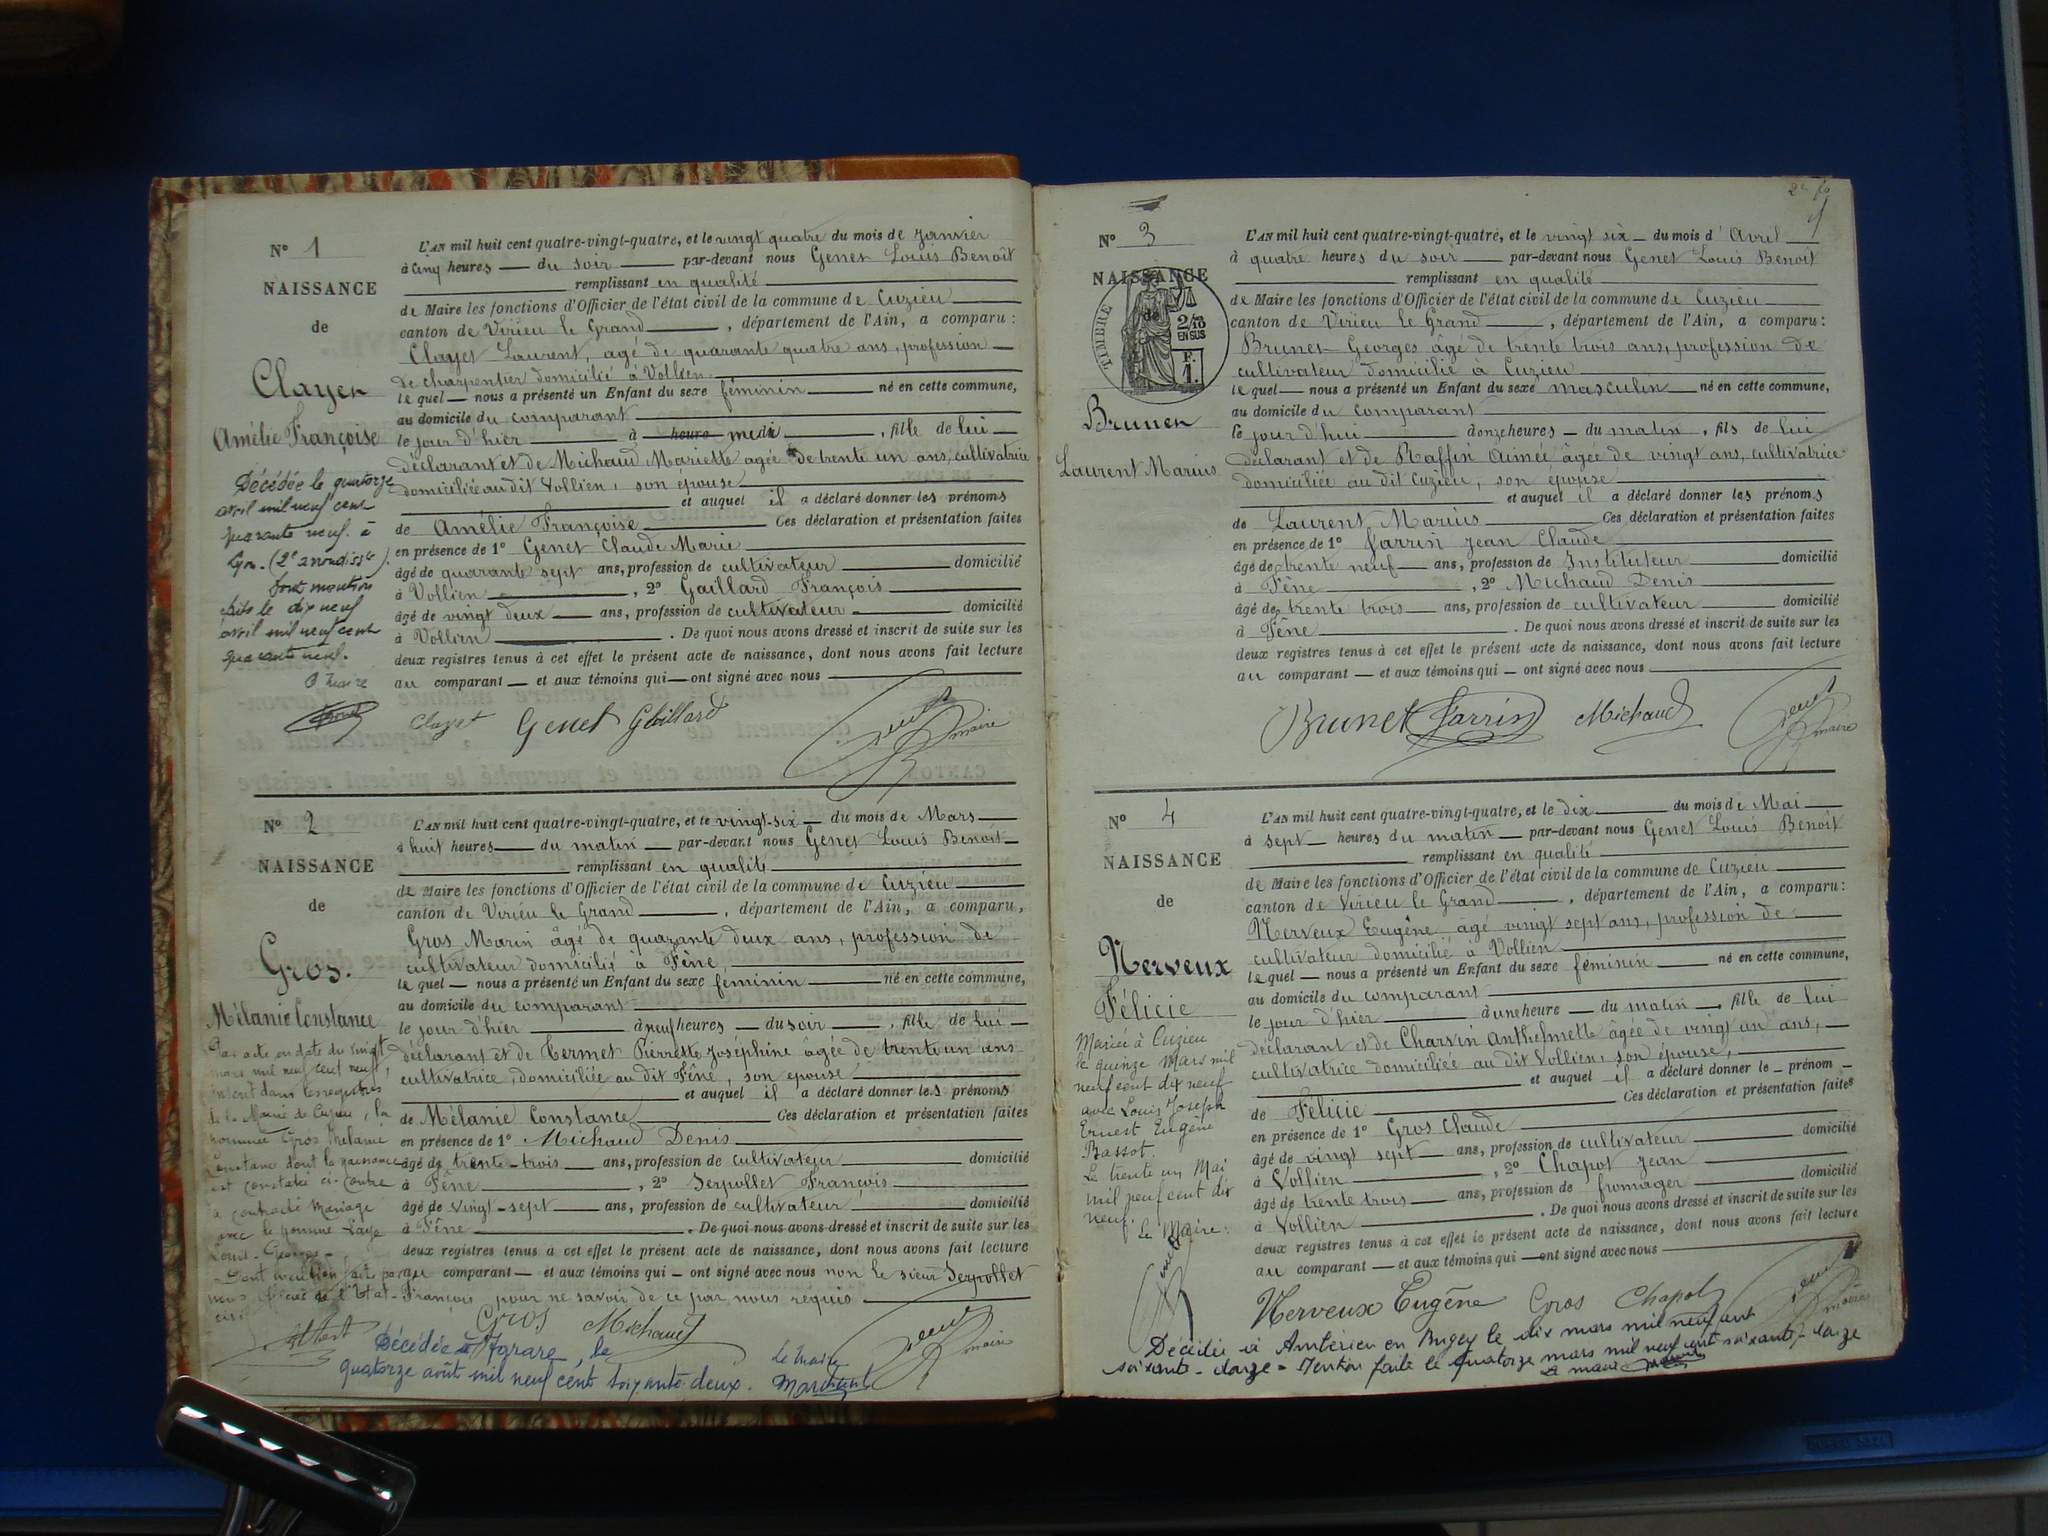 N° 1
NAISSANCE
de
Clayet
Amélie Françoise
Décédée le quatorze
avril mil neuf cent
quarante neuf à
Lyon (2e arrondisst).
Dont mention
faite le dix neuf
avril mil neuf cent
quarante neuf.
L'AN mil huit cent quatre-vingt-quatre, et le vingt quatre du mois de Janvier
à cinq heures du soir par-devant nous Genet Louis Benoît
remplissant en qualité
de Maire les fonctions d'Officier de l'état civil de la commune de Cuzieu
canton de Virieu le Grand, département de l'Ain, a comparu :
Clayet Laurent, agé de quarante quatre ans, profession
de charpentier domicilié à Vollien
le quel nous a présenté un Enfant du sexe féminin né en cette commune,
au domicile du comparant
le jour d'hier à heure midi, fille de lui
déclarant et de Michaud Mariette agée de trente un ans, cultivatrice
domiciliée au dit Vollien, son épouse
et auquel il a déclaré donner les prénoms
de Amélie Françoise Ces déclaration et présentation faites
en présence de 1° Genet Claude Marie
âgé de quarante sept ans, profession de cultivateur domicilié
à Vollien, 2° Gaillard François
âgé de vingt deux ans, profession de cultivateur domicilié
à Vollien. De quoi nous avons dressé et inscrit de suite sur les
deux registres tenus à cet effet le présent acte de naissance, dont nous avons fait lecture
au comparant et aux témoins qui ont signé avec nous
Clayet Genet Gaillard Genet maire
N° 2
NAISSANCE
de
Gros.
Mélanie Constance
Par acte en date du vingt
mars mil neuf cent neuf,
inscrit dans les registres
de la Mairie de Cuzieu, la
nommée Gros Mélanie
Constance dont la naissance
est constatée ci-contre
a contracté mariage
avec le nommé
Louis Georges
L'AN mil huit cent quatre-vingt-quatre, et le vingt-six du mois de Mars
à huit heures du matin par-devant nous Genet Louis Benoît
remplissant en qualité
de Maire les fonctions d'Officier de l'état civil de la commune de Cuzieu
canton de Virieu le Grand, département de l'Ain, a comparu,
Gros Marin âgé de quarante deux ans, profession de
cultivateur domicilié à Fêne,
le quel nous a présenté un Enfant du sexe féminin né en cette commune,
au domicile du comparant
le jour d'hier à neuf heures du soir, fille de lui
déclarant et de Termet Pierrette Joséphine âgée de trente un ans
cultivatrice, domiciliée au dit Fêne, son épouse,
et auquel il a déclaré donner les prénoms
de Mélanie Constance Ces déclaration et présentation faites
en présence de 1° Michaud Denis
âgé de trente-trois ans, profession de cultivateur domicilié
à Fêne, 2° Serpollet François
âgé de vingt-sept ans, profession de cultivateur domicilié
à Fêne. De quoi nous avons dressé et inscrit de suite sur les
deux registres tenus à cet effet le présent acte de naissance, dont nous avons fait lecture
au comparant et aux témoins qui ont signé avec nous non le sieur Serpollet
François pour ne savoir de ce par nous requis
Gros Michaud Genet maire
Décédée à le
quatorze août mil neuf cent soixante-deux. Le Maire
N° 3
NAISSANCE
de
TIMBRE
2/10
EN SUS
F.
1.
Brunet
Laurent Marius
L'AN mil huit cent quatre-vingt-quatre, et le vingt six du mois d'Avril
à quatre heures du soir par-devant nous Genet Louis Benoît
remplissant en qualité
de Maire les fonctions d'Officier de l'état civil de la commune de Cuzieu
canton de Virieu le Grand, département de l'Ain, a comparu :
Brunet Georges âgé de trente trois ans, profession de
cultivateur domicilié à Cuzieu
le quel nous a présenté un Enfant du sexe masculin né en cette commune,
au domicile du comparant
le jour d'hui à onze heures du matin, fils de lui
déclarant et de Raffin Aimée âgée de vingt ans, cultivatrice
domiciliée au dit Cuzieu, son épouse
et auquel il a déclaré donner les prénoms
de Laurent Marius Ces déclaration et présentation faites
en présence de 1° Jarrin Jean Claude
âgé de trente neuf ans, profession de Instituteur domicilié
à Fêne, 2° Michaud Denis
âgé de trente trois ans, profession de cultivateur domicilié
à Fêne. De quoi nous avons dressé et inscrit de suite sur les
deux registres tenus à cet effet le présent acte de naissance, dont nous avons fait lecture
au comparant et aux témoins qui ont signé avec nous
Brunet Jarrin Michaud Genet maire
N° 4
NAISSANCE
de
Nerveux
Félicie
Mariée à Cuzieu
le quinze Mars mil
neuf cent dix neuf
avec Louis Joseph
Ernest Eugène
Bassot.
Le trente un Mai
mil neuf cent dix
neuf.
Le Maire :
L'AN mil huit cent quatre-vingt-quatre, et le dix du mois de Mai
à sept heures du matin par-devant nous Genet Louis Benoît
remplissant en qualité
de Maire les fonctions d'Officier de l'état civil de la commune de Cuzieu
canton de Virieu le Grand, département de l'Ain, a comparu :
Nerveux Eugêne âgé vingt sept ans, profession de
cultivateur domicilié à Vollien
le quel nous a présenté un Enfant du sexe féminin né en cette commune,
au domicile du comparant
le jour d'hier à une heure du matin, fille de lui
déclarant et de Charvin Anthelmette âgée de vingt un ans,
cultivatrice domiciliée au dit Vollien, son épouse,
et auquel il a déclaré donner le prénom
de Félicie Ces déclaration et présentation faites
en présence de 1° Gros Claude
âgé de vingt sept ans, profession de cultivateur domicilié
à Vollien, 2° Chapot Jean
âgé de trente trois ans, profession de fromager domicilié
à Vollien. De quoi nous avons dressé et inscrit de suite sur les
deux registres tenus à cet effet le présent acte de naissance, dont nous avons fait lecture
au comparant et aux témoins qui ont signé avec nous
Nerveux Eugêne Gros Chapot Genet maire
Décédée à Ambérieu en Bugey le dix mars mil neuf cent
soixante-douze = Mention faite le quatorze mars mil neuf cent soixante-douze
Le maire